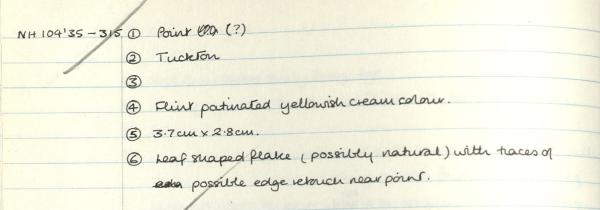 NH 104'35-315 ① Point (?)
② Tuckton
③
④ Flint patinated yellowish cream colour.
⑤ 3.7cm x 2.8cm.
⑥ Leaf shaped flake (possibly natural) with traces of
possible edge retouch near point.